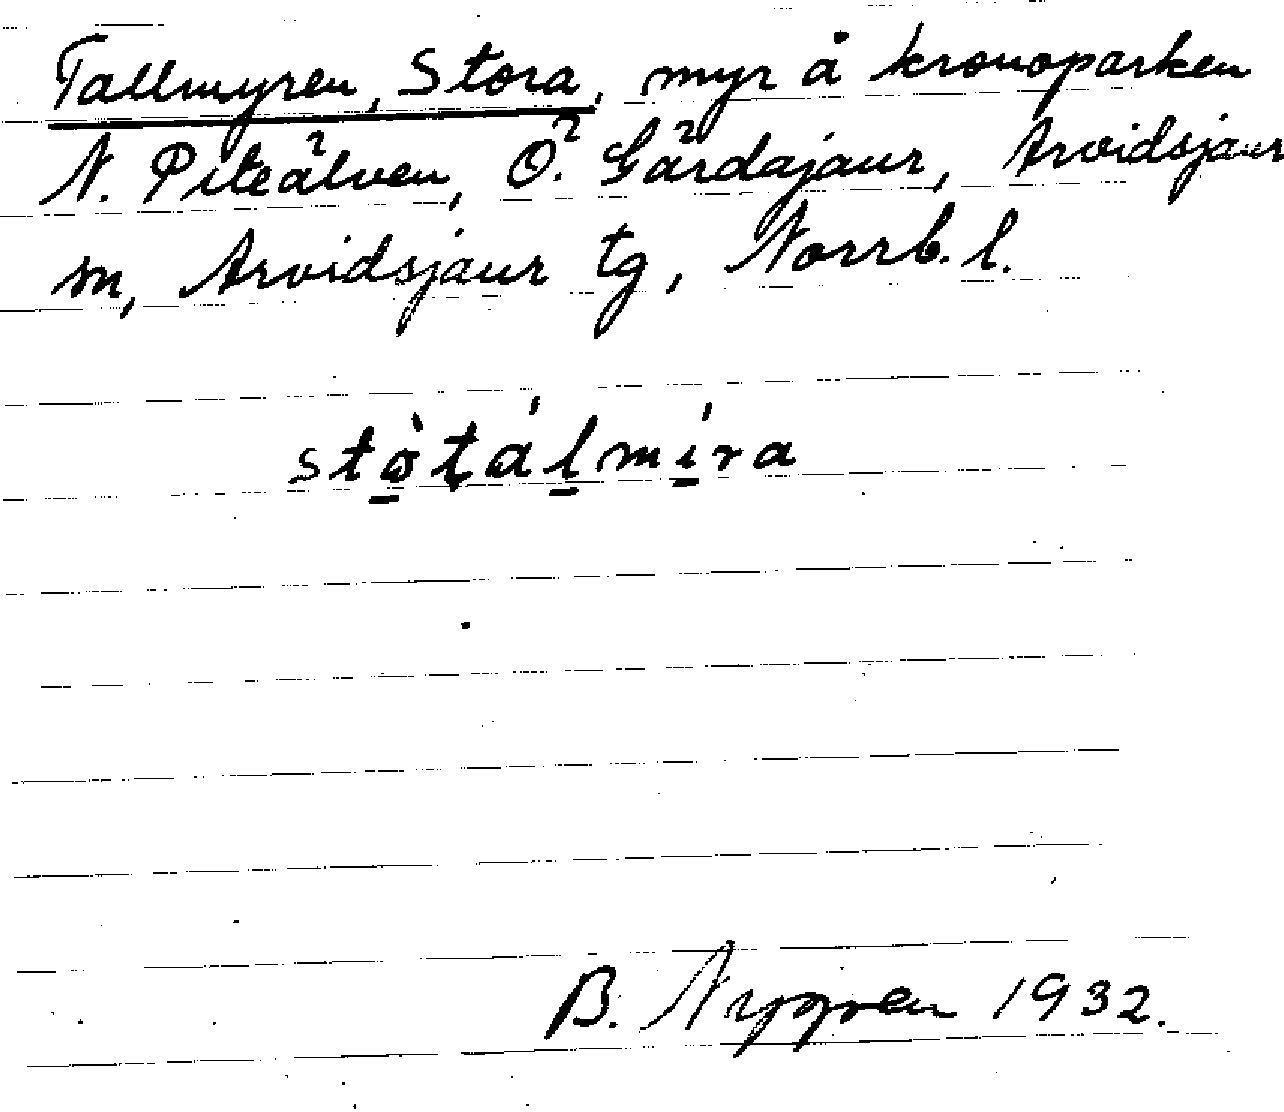 Tallmyren, Stora, myr å kronoparken
N. Piteälven, Ö. Gärdajaur, Arvidsjaur
sn, Arvidsjaur tg, Norrb. l.
stò̱ţáḻmí̱ra
B. Nygren 1932.